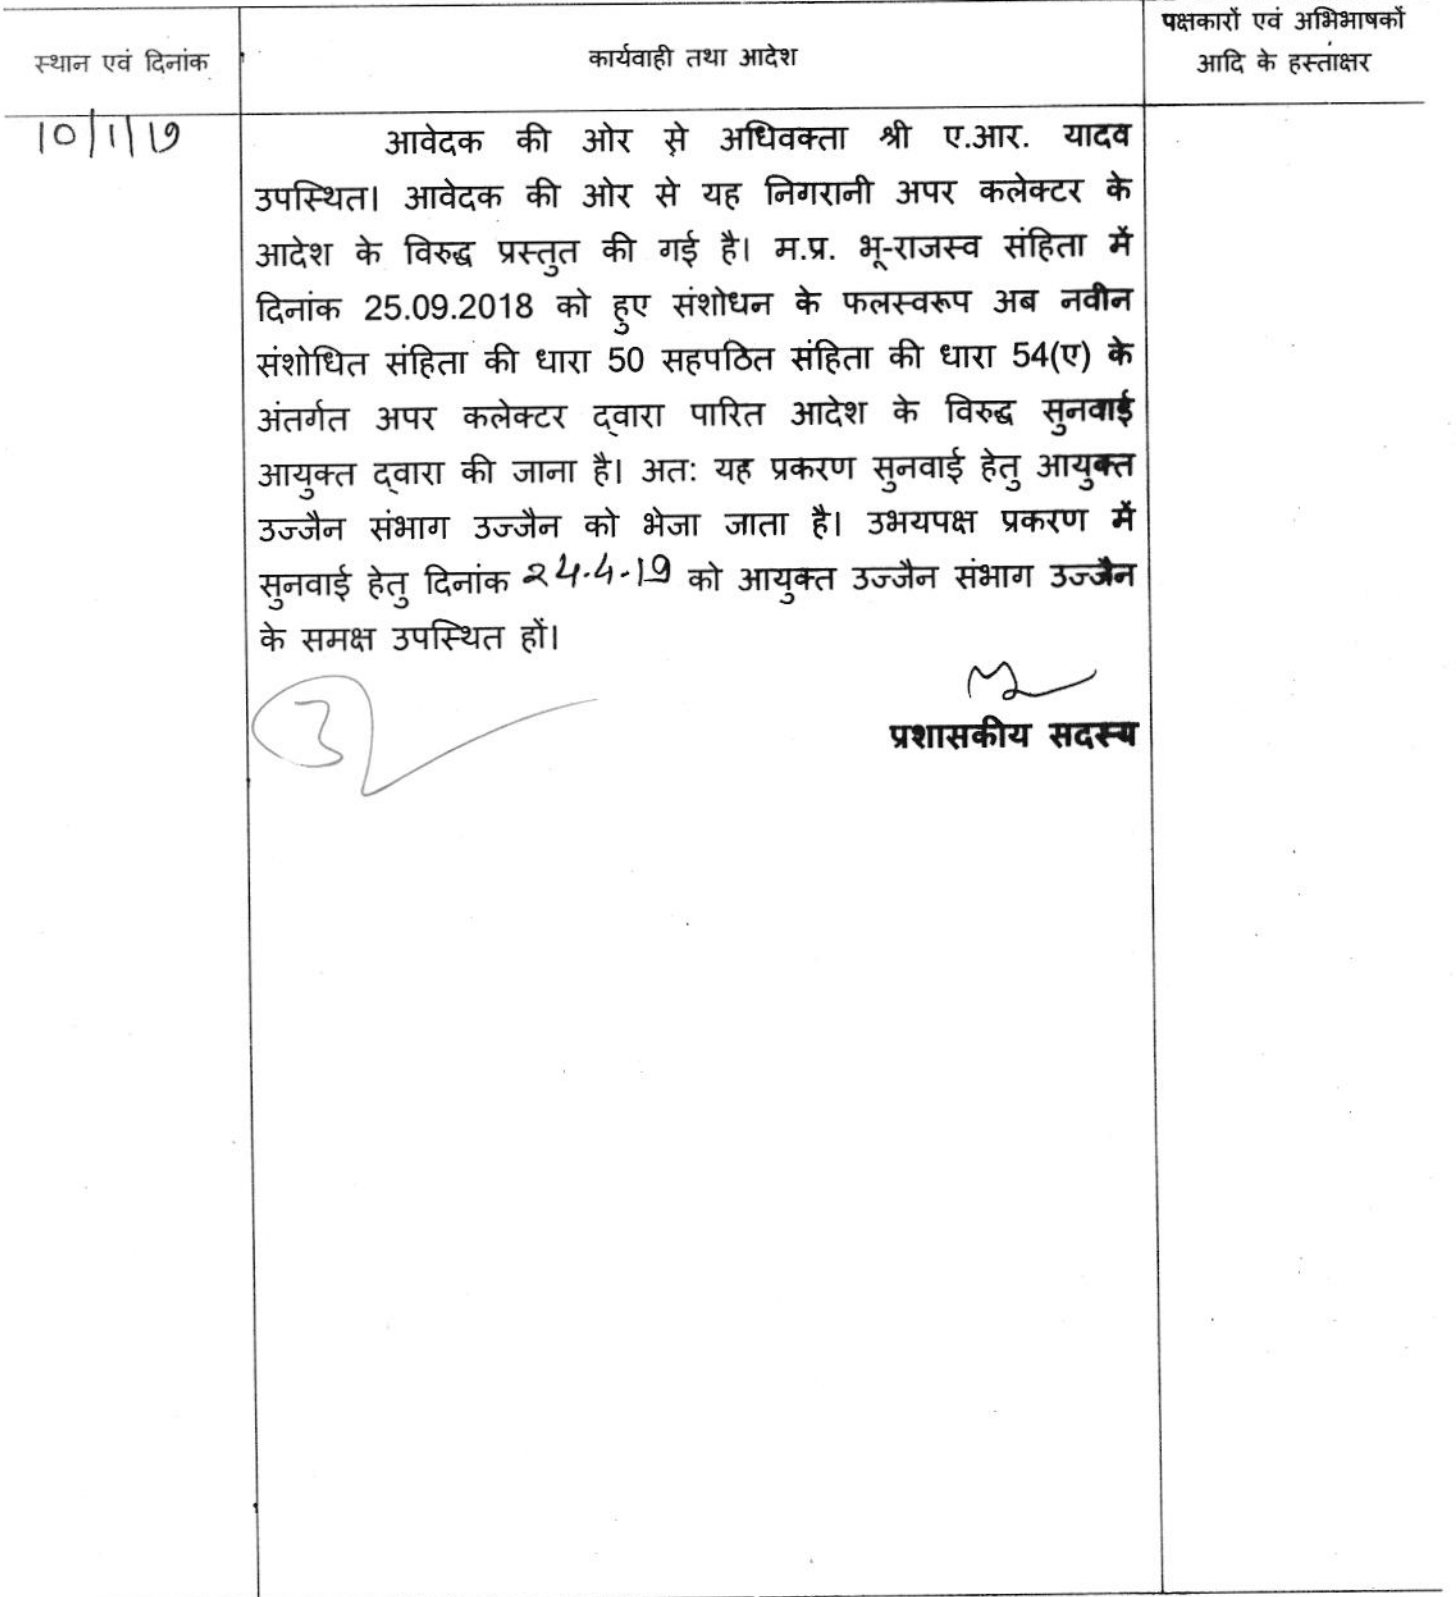 स्थान एवं दिनांक
कार्यवाही तथा आदेश
पक्षकारों एवं अभिभाषकों
आदि के हस्ताक्षर
10/1/19
आवेदक की ओर से अधिवक्ता श्री ए.आर. यादव
उपस्थित। आवेदक की ओर से यह निगरानी अपर कलेक्टर के
आदेश के विरुद्ध प्रस्तुत की गई है। म.प्र. भू-राजस्व संहिता में
दिनांक 25.09.2018 को हुए संशोधन के फलस्वरूप अब नवीन
संशोधित संहिता की धारा 50 सहपठित संहिता की धारा 54(ए) के
अंतर्गत अपर कलेक्टर द्वारा पारित आदेश के विरुद्ध सुनवाई
आयुक्त द्वारा की जाना है। अतः यह प्रकरण सुनवाई हेतु आयुक्त
उज्जैन संभाग उज्जैन को भेजा जाता है। उभयपक्ष प्रकरण में
सुनवाई हेतु दिनांक 24.4.19 को आयुक्त उज्जैन संभाग उज्जैन
के समक्ष उपस्थित हों।
प्रशासकीय सदस्य